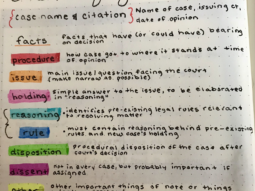 {case name & citation} Name of case, issuing ct,
date of opinion
facts facts that have (or could have) bearing
on decision
procedure how case got to where it stands at time
of opinion
issue main issue/question facing the court
(make narrow as possible)
holding simple answer to the issue, to be elaborated
in "reasoning"
reasoning identifies pre-existing legal rules relevant
to resolving matter
rule must contain reasoning behind pre-existing
rules and new case's holding
disposition Procedural disposition of the case after
court's decision
dissent not in every case, but probably important if
assigned
other important things of note or things